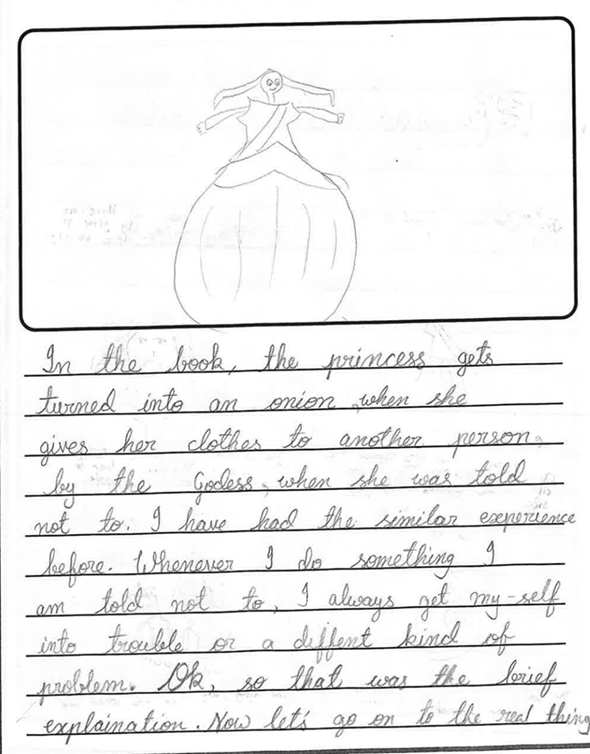 In the book, the princess gets
turned into an onion, when she
gives her clothes to another person,
by the Godess, when she was told
not to. I have had the similar experience
before. Whenever I do something I
am told not to, I always get my-self
into trouble or a diffent kind of
problem. Ok, so that was the brief
explaination. Now let's go on to the real thing